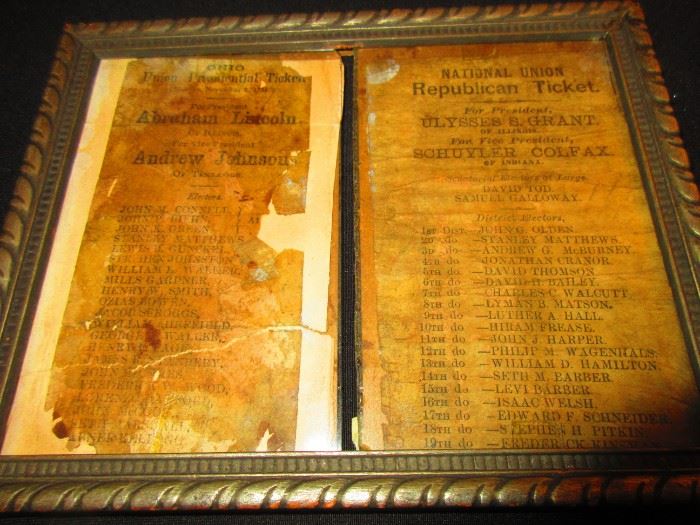 OHIO
Union Presidential Ticket
For President
Abraham Lincoln,
OF ILLINOIS.
For Vice President
Andrew Johnson,
OF TENNESSEE.
Electors.
JOHN M. CONNELL,
JOHN P. BIEHN,
JOHN K. GREEN,
STANLEY MATTHEWS
LEWIS B. GUNCKEL,
STE. BENJOHNSTON
WILLIAM L. WALKER,
MILES GARDNER,
HENRY W. SMITH,
OZIAS BOWEN,
JACOB SCROGGS,
WILLIAM SHEFFIELD,
GEORGE WALLER,
FREDERICK W. WOOD,
ABNER KELLOGG
NATIONAL UNION
Republican Ticket.
For President,
ULYSSES S. GRANT.
OF ILLINOIS.
For Vice President,
SCHUYLER COLFAX
OF INDIANA.
Senatorial Electors at Large.
DAVID TOD.
SAMUEL GALLOWAY.
District Electors,
1ST DIST.—JOHN G. OLDEN.
2D do —STANLEY MATTHEWS.
3D do —ANDREW G. McBURNEY.
4TH do —JONATHAN CRANOR.
5TH do —DAVID THOMSON.
6TH do —DAVID H. BAILEY.
7TH do —CHARLES C. WALCUTT
8TH do —LYMAN B. MATSON.
9TH do —LUTHER A. HALL.
10TH do —HIRAM FREASE.
11TH do —JOHN J. HARPER.
12TH do —PHILIP M. WAGENHALS.
13TH do —WILLIAM D. HAMILTON.
14TH do —SETH M. BARBER.
15TH do —LEVI BARBER.
16TH do —ISAAC WELSH.
17TH do —EDWARD F. SCHNEIDER.
18TH do —STEPHEN H. PITKIN.
19TH do —FREDERICK KINSMAN